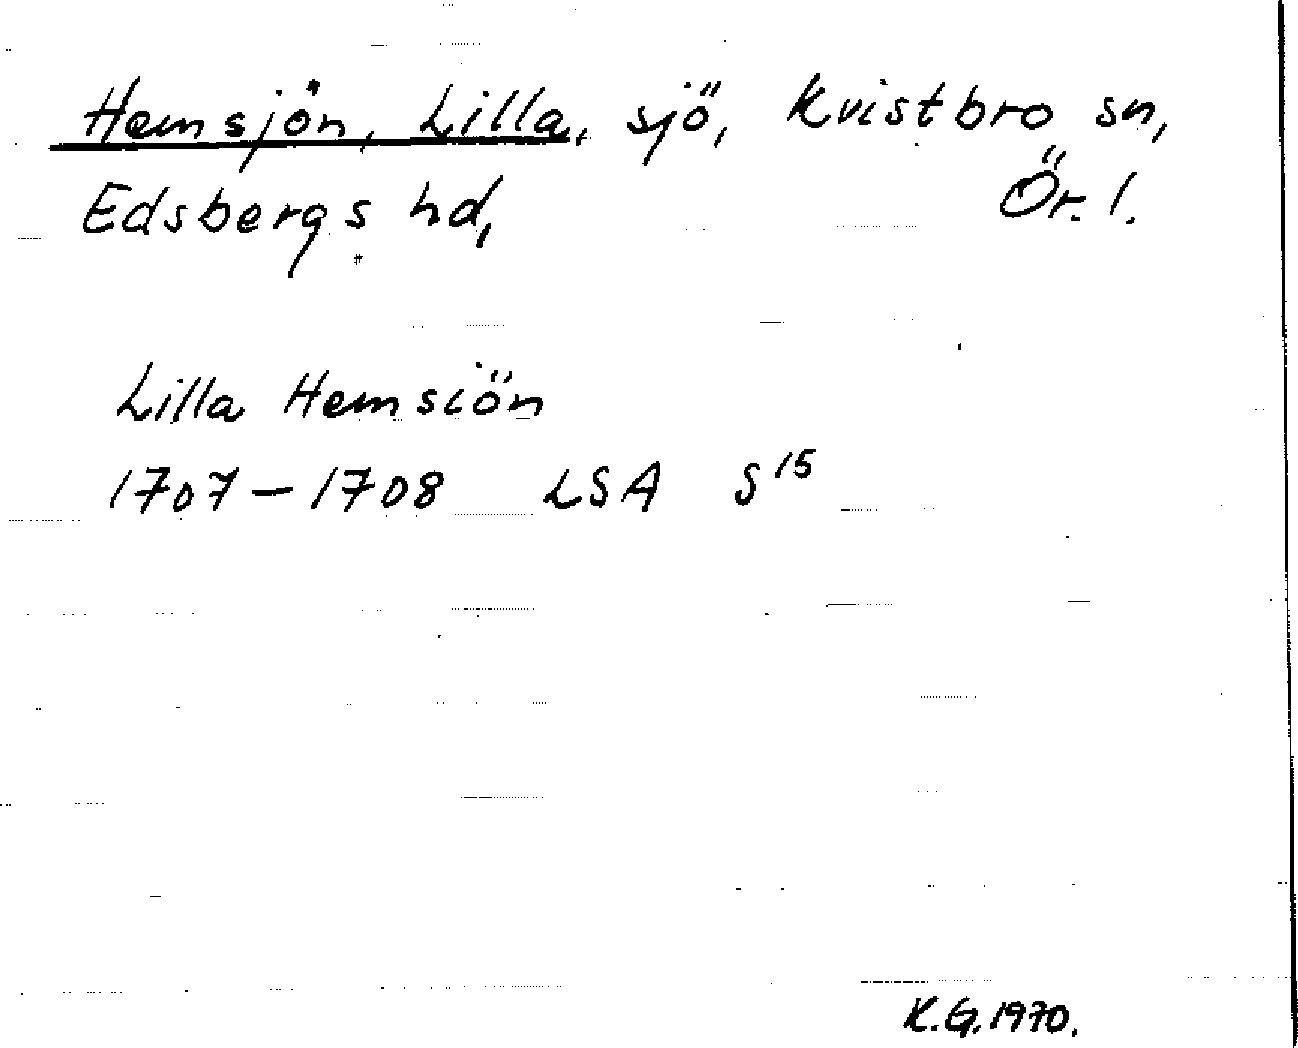 Hemsjön, Lilla, sjö, Kvistbro sn,
Edsbergs hd, Ör. l.
Lilla Hemsiön
1707-1708 LSA S 15
K.G. 1970.